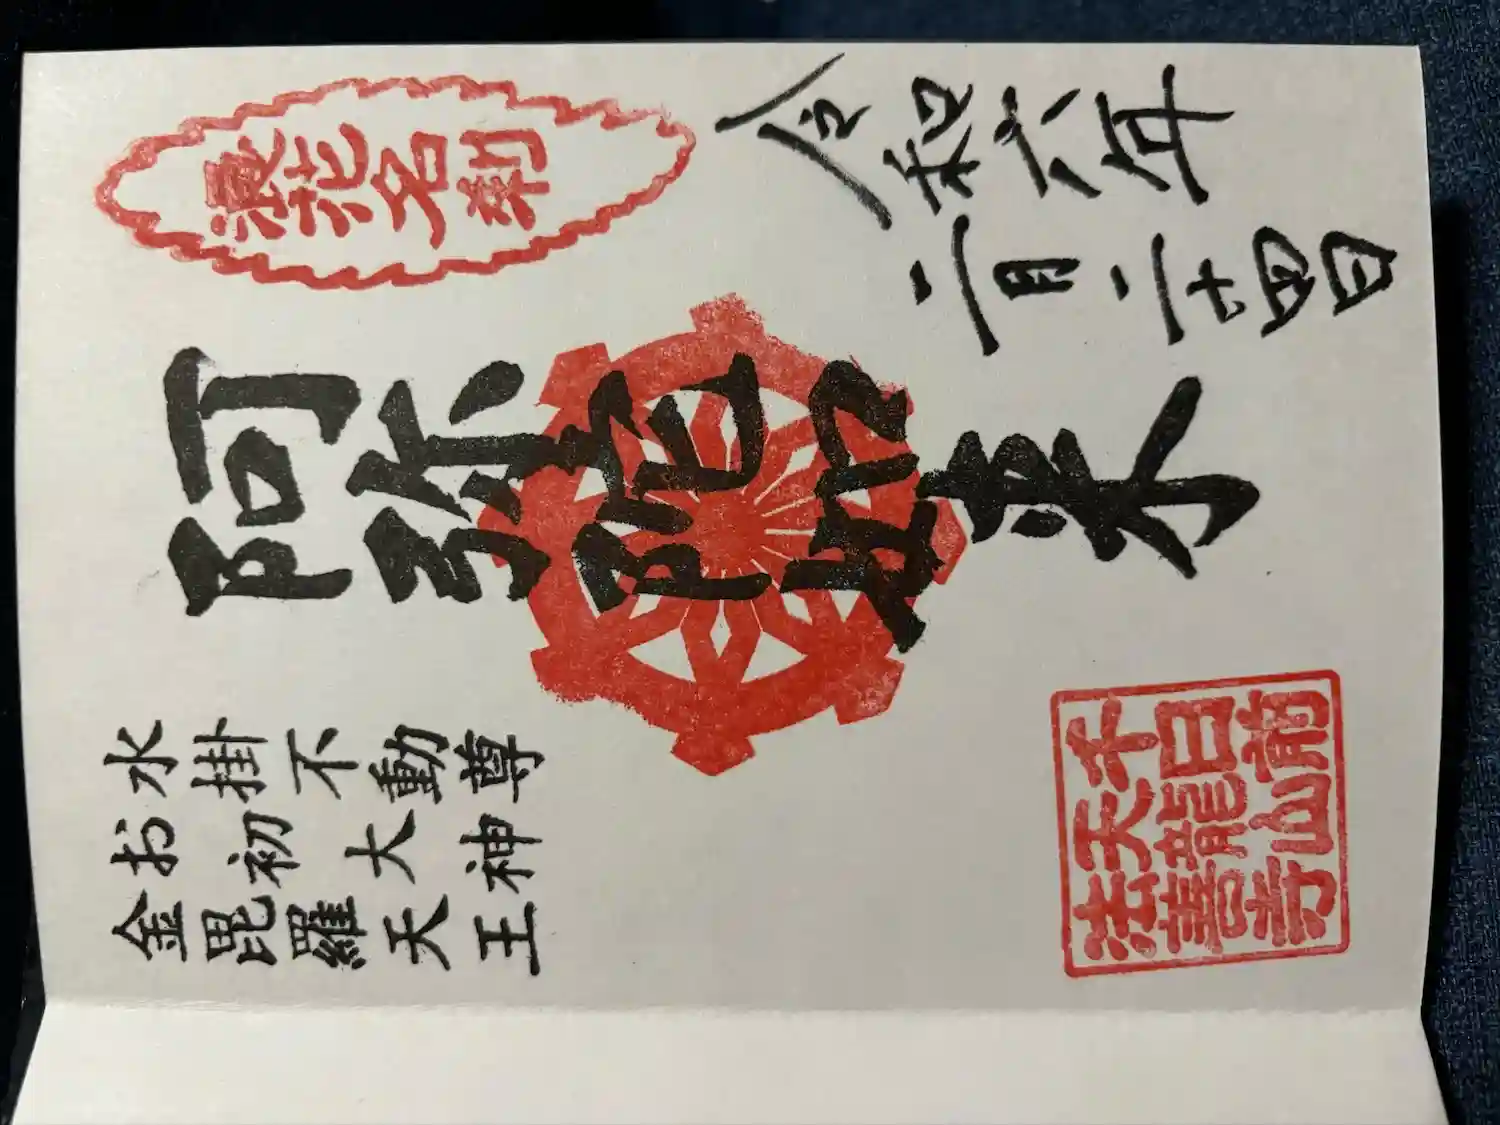 浪花名刹
令和六年
二月二十四日
阿弥陀如来
水掛不動尊
お初大神
金毘羅天王
千日前
天龍山
法善寺